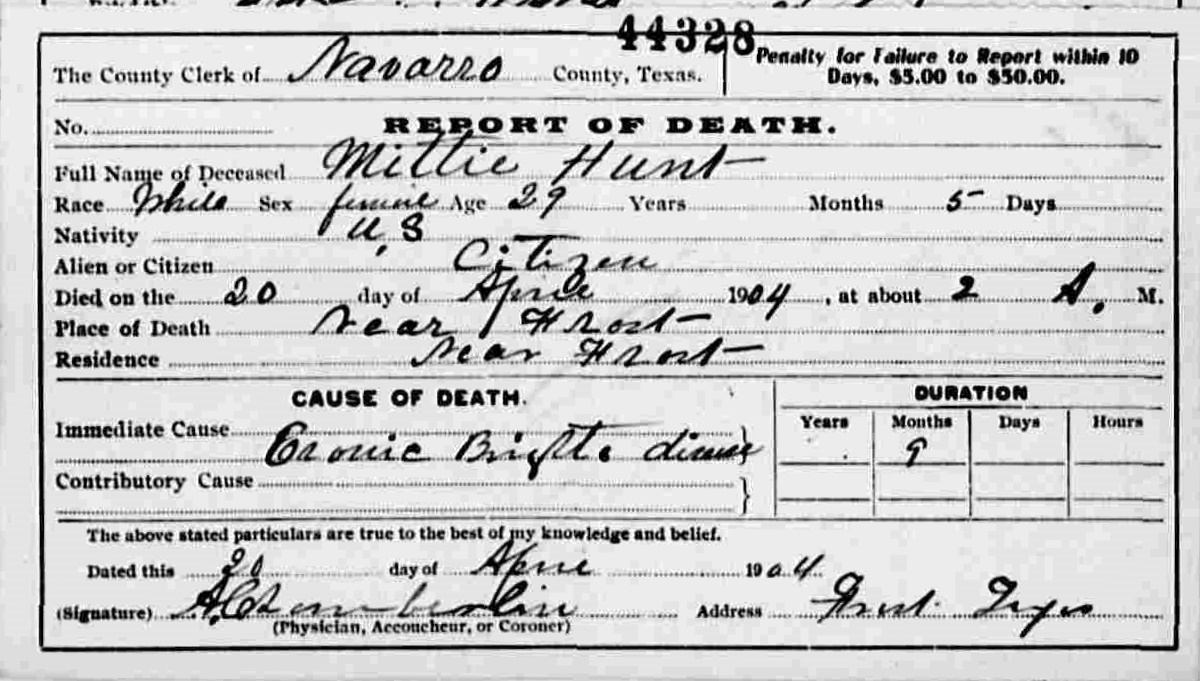 44328
The County Clerk of Navarro County, Texas.
Penalty for Failure to Report within 10
Days, $5.00 to $50.00.
No.
REPORT OF DEATH.
Full Name of Deceased Mittie Hunt
Race White Sex female Age 29 Years Months 5 Days
Nativity U.S
Alien or Citizen Citizen
Died on the 20 day of Aprie 1904, at about 2 A. M.
Place of Death Near Frost
Residence Near Frost
CAUSE OF DEATH.
DURATION
Years Months Days Hours
Immediate Cause
Cronic Brights disease 9
Contributory Cause
The above stated particulars are true to the best of my knowledge and belief.
Dated this 20 day of Aprie 1904
(Signature) Address Frost Texas
(Physician, Accoucheur, or Coroner)